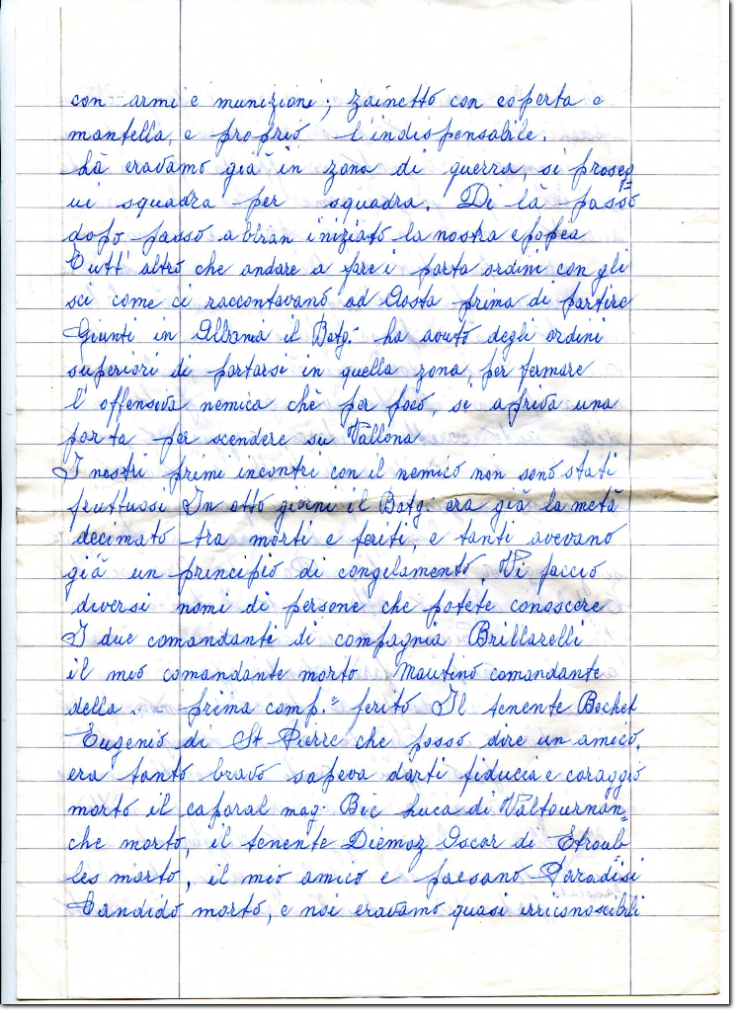 con armi e munizioni; zainetto con coperta e
mantella, e proprio l'indispensabile.
Là eravamo già in zona di guerra, si proseg
uì squadra per squadra. Di là passo
dopo passo abbian iniziato la nostra epopea
Tutt'altro che andare a fare i porta ordini con gli
sci come ci raccontavano ad Aosta prima di partire
Giunti in Albania il Batg. ha avuto degli ordini
superiori di portarsi in quella zona, per fermare
l'offensiva nemica chè per poco, se apriva una
porta per scendere su Vallona
I nostri primi incontri con il nemico non sono stati
fruttuosi In otto giorni il Batg. era già la metà
decimato tra morti e feriti, e tanti avevano
già un principio di congelamento, Vi faccio
diversi nomi di persone che potete conoscere
I due comandanti di compagnia Brillarelli
il mio comandante morto Mautino comandante
della prima comp.= ferito Il tenente Bochet
Eugenio di St Pierre che posso dire un amico,
era tanto bravo sapeva darti fiducia e coraggio
morto il caporal mag. Bic Luca di Valtournan=
che morto, il tenente Diemoz Oscar di Etroub
les morto, il mio amico e paesano Paradisi
Candido morto, e noi eravamo quasi irriconoscibili